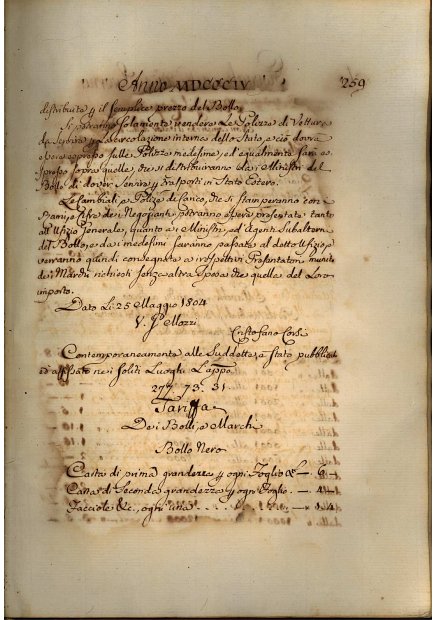 Anno MDCCCIV 259
distribuite p il semplice prezzo del Bollo.
Si potranno solamente vendere le Polizze di Vettura
da servire p la circolazione interna dello Stato, e ciò dovrà
essere espresso sulle Polizze medesime, ed egualmente sarà e-
spresso sopra quelle, che si distribuiranno dai Ministri del
Bollo di dover servire p trasporti in Stato Estero.
Le Cambiali, e Polizze di Carico, che si stamperanno con
Rami, e Cifre dei Negozianti, potranno essere presentate tanto
all'Ufizio Generale, quanto ai Ministri, ed Agenti Subalterni
del Bollo, e da i medesimi saranno passate al detto Ufizio, e
verranno quindi consegnate a i respettivi Presentatori, munite
dei Marchi richiesti senz'altra spesa che quella del Loro
importo.
Dato Li 25 Maggio 1804
V. J Mozzi
Cristofano Corsi
Contemporaneamente alle Suddette, è stato pubblicat
ed affissato nei soliti Luoghi L'app.
277. 73. 31
Tariffa
Dei Bolli, e Marchi
Bollo Nero
Carta di prima grandezza p ogni Foglio £ — . 6 —
Carta di Seconda grandezza p ogni Foglio . — . 4 —
Facciole &c., ogni una . . . . . — . 1. 4